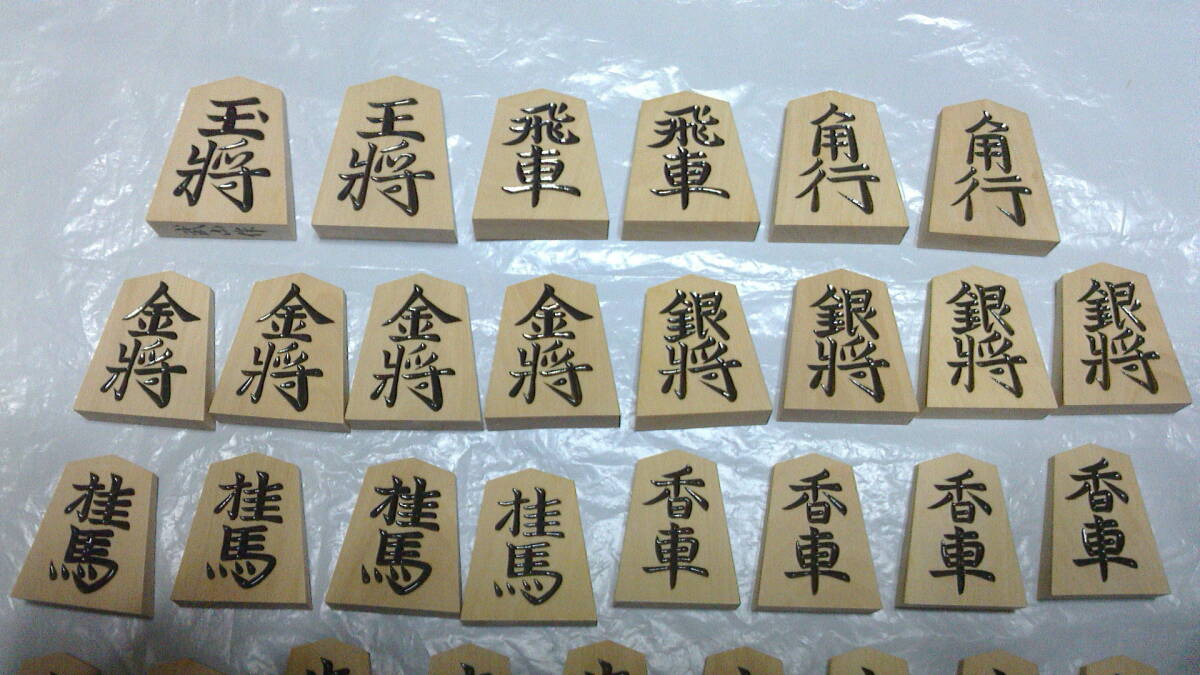 玉將
王將
飛車
飛車
角行
角行
金將
金將
金將
金將
銀將
銀將
銀將
銀將
桂馬
桂馬
桂馬
桂馬
香車
香車
香車
香車